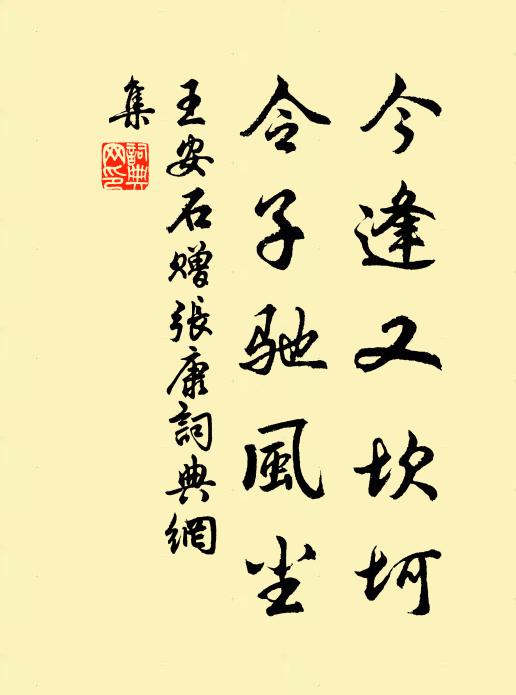 今逢又坎坷
令子馳風尘
王安石贈張康詞典網
集
詞典網印